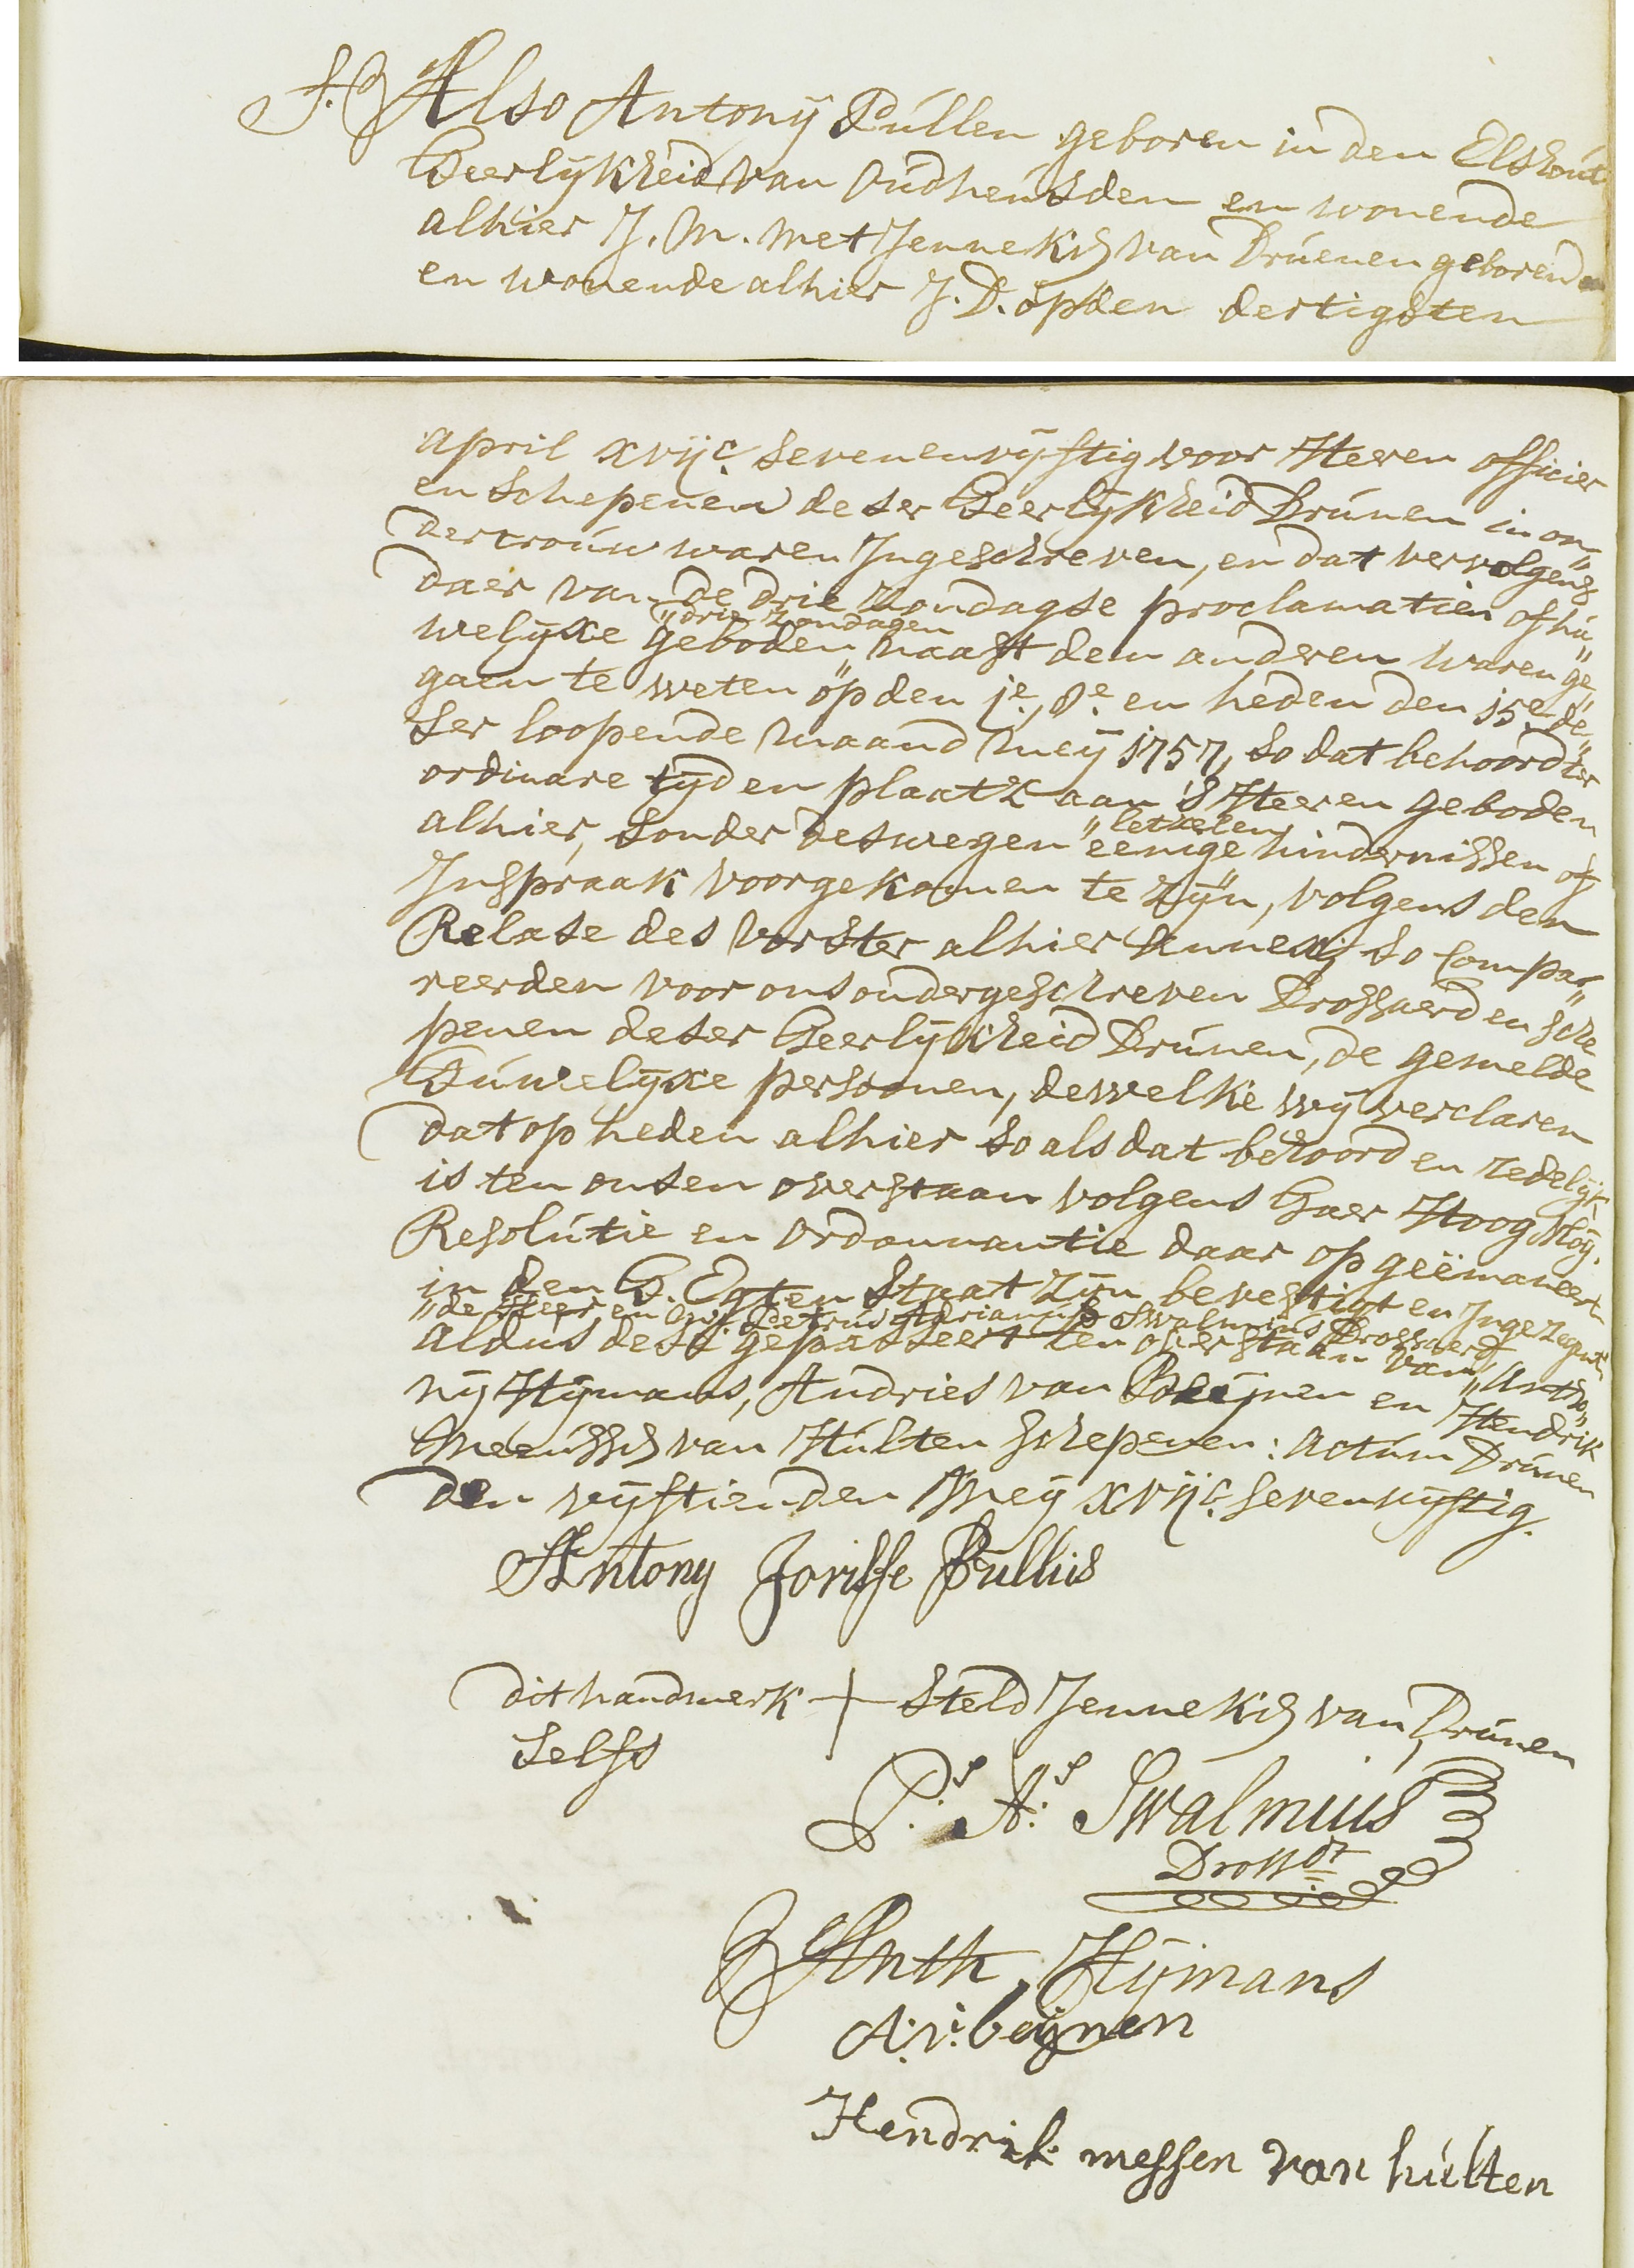 Also Antonÿ Pullen geboren in den Elshout
Heerlÿkheid van Oudheusden en wonende
alhier J. M. met Jenneke van Druenen geboren
en wonende alhier J. D. op den dertigsten
april xvijc. sevenenvÿftig voor Heeren officier
en Schepenen deser Heerlÿkheid Drunen in on„
dertrouw waren Ingeschreven, en dat vervolgens
daer van de drie zondagse proclamatien of hu„
welÿxe geboden „drie zondagen naast den anderen waren ge„
gaen te weten op den 1e., 8e. en heden den 15e. de„
ser loopende maand meÿ 1757, so dat behoord ter
ordinare tÿd en plaatze aan 's Heeren geboden
alhier, sonder deswegen „letzelen eenige hindernissen of
Inspraak voorgekomen te zÿn, volgens den
Relase des Vorster alhier annex, so compa„
reerden voor ons ondergeschreven Drossaerd en sche
penen deser Heerlÿkheid Drunen, de gemelde
Huwelÿxe persoonen, dewelke wÿ verclaren
dat op heden alhier so als dat behoord en zedelÿk
is ten onsen overstaan volgens Haer Hoog Mog.
Resolutie en ordonnantie daar op geëmaneert
in den H. Egten Staat zÿn bevestigt en Ingezegent
„de Heer en Mr. Petrus Adrianus Swalmius Drossaerd
aldus dese gepasseert ten overstaan van „Antho„
nÿ Hÿmans, Andries van Beÿnen en Hendrik
Meeussen van Hulten schepenen: Actum Drunen
den vÿftienden Meÿ xvijc. sevenvÿftig.
Antony Jorisse Pullus
dit handmerk + steld Jenneke van Drunen
selfs
P.s A.s Swalmius
Drossdt
Anth, Hÿmans
A: v: beijnen
Hendrik messen van hulten